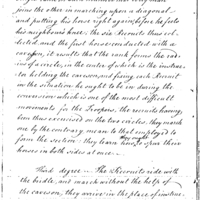 join the other in marching upon a diagonal
and putting his horse right again before he feels
his neighbours knee: the six Recruits thus col-
lected, and the first horse conducted with a
caveson, it results that the rank forms the rad-
ius of a circle, in the centre of which is the instruc-
tor holding the caveson, and fixing each Recruit
in the situation he ought to be in during the
conversion which is one of the most difficult
movements for the Troopers, the recruits having
been thus exercised on the two circles, they march
one by the contrary mean to that employed to
form the section; they learn to open their
horses on both sides at once.
Third degree. The Recruit rides with
the bridle, and march without the help of
the caveson; they arrive in the place of instruc-